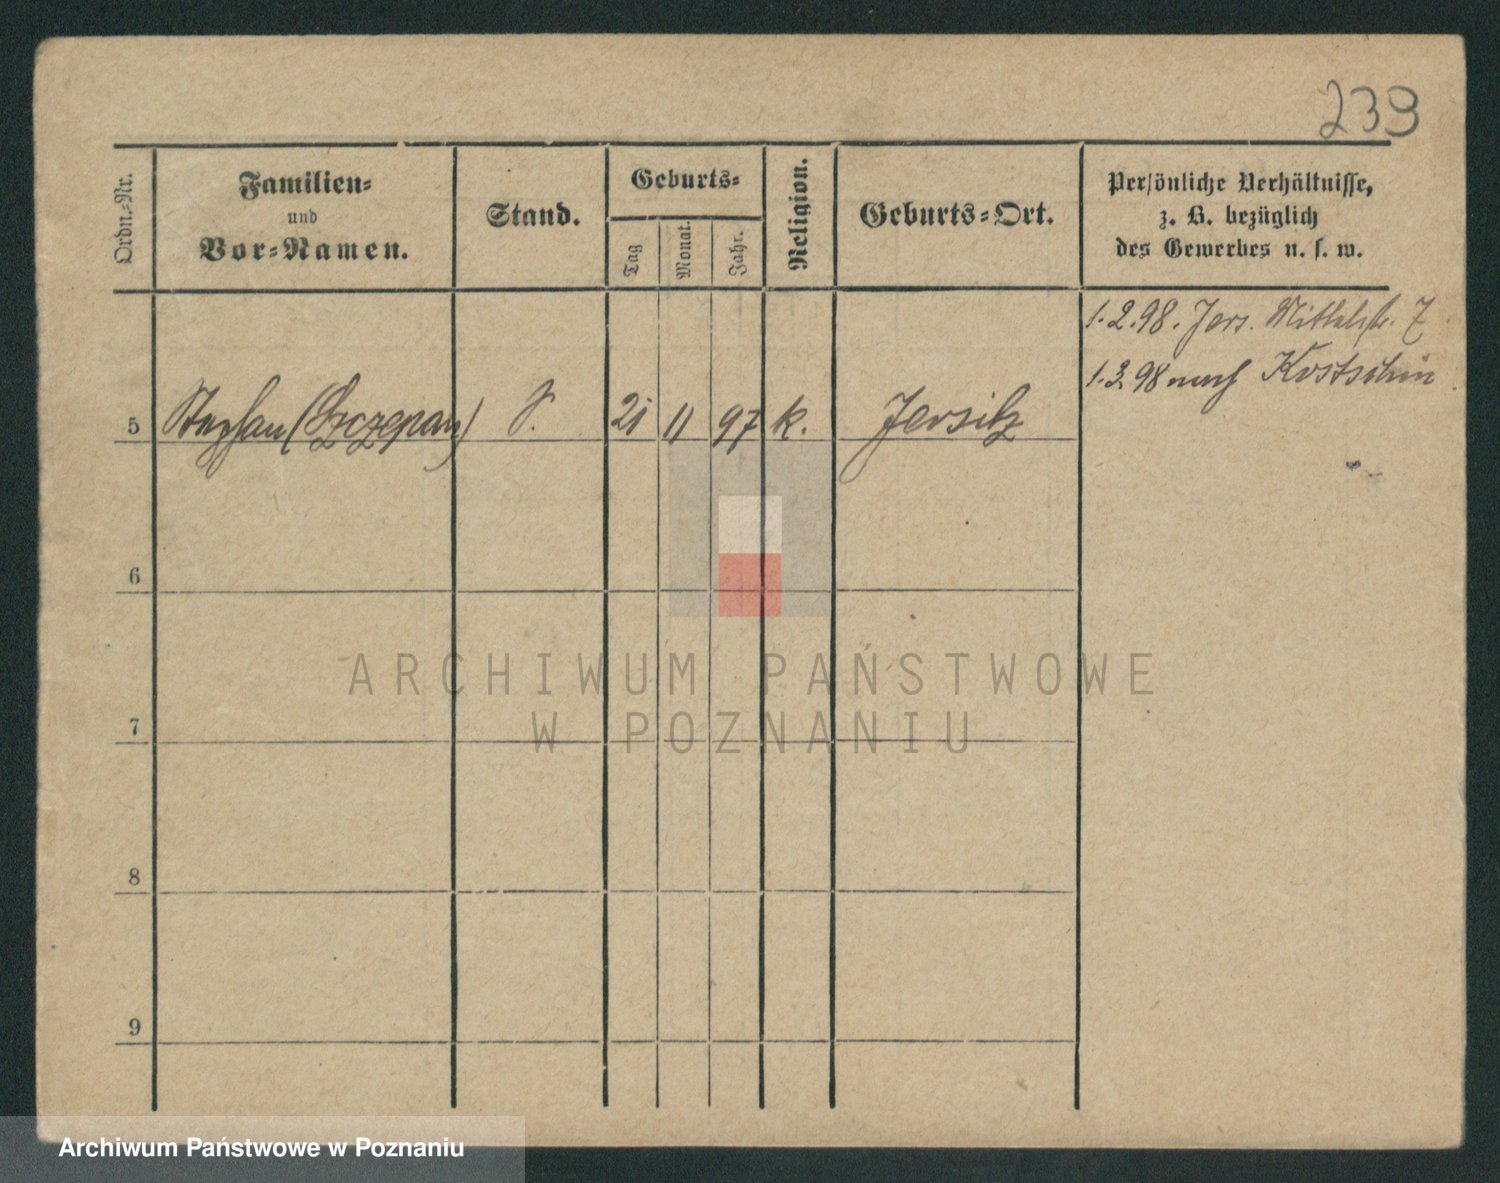 239
Ordn.-Nr.
Familien-
und
Vor-Namen.
Stand.
Geburts-
Tag
Monat.
Jahr.
Religion.
Geburts-Ort.
Persönliche Verhältnisse,
z. B. bezüglich
des Gewerbes u. s. w.
1.2.98. Jers. Mittelstr. 7
1.3.98 nach Kostschin
5 Stephan (Szczepan) S. 21 11 97 k. Jersitz
6
ARCHIWUM PAŃSTWOWE
W POZNANIU
7
8
9
Archiwum Państwowe w Poznaniu